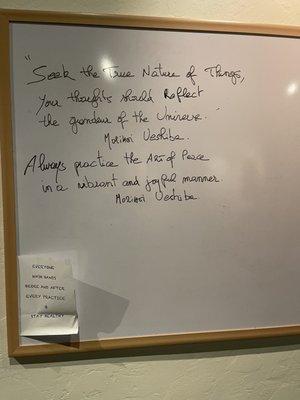 "Seek the True Nature of Things,
Your thoughts should Reflect
the grandeur of the Universe."
Morihei Ueshiba.
Always practice the Art of Peace
in a vibrant and joyful manner.
Morihei Ueshiba
EVERYONE
WASH HANDS
BEFORE AND AFTER
EVERY PRACTICE
&
STAY HEALTHY